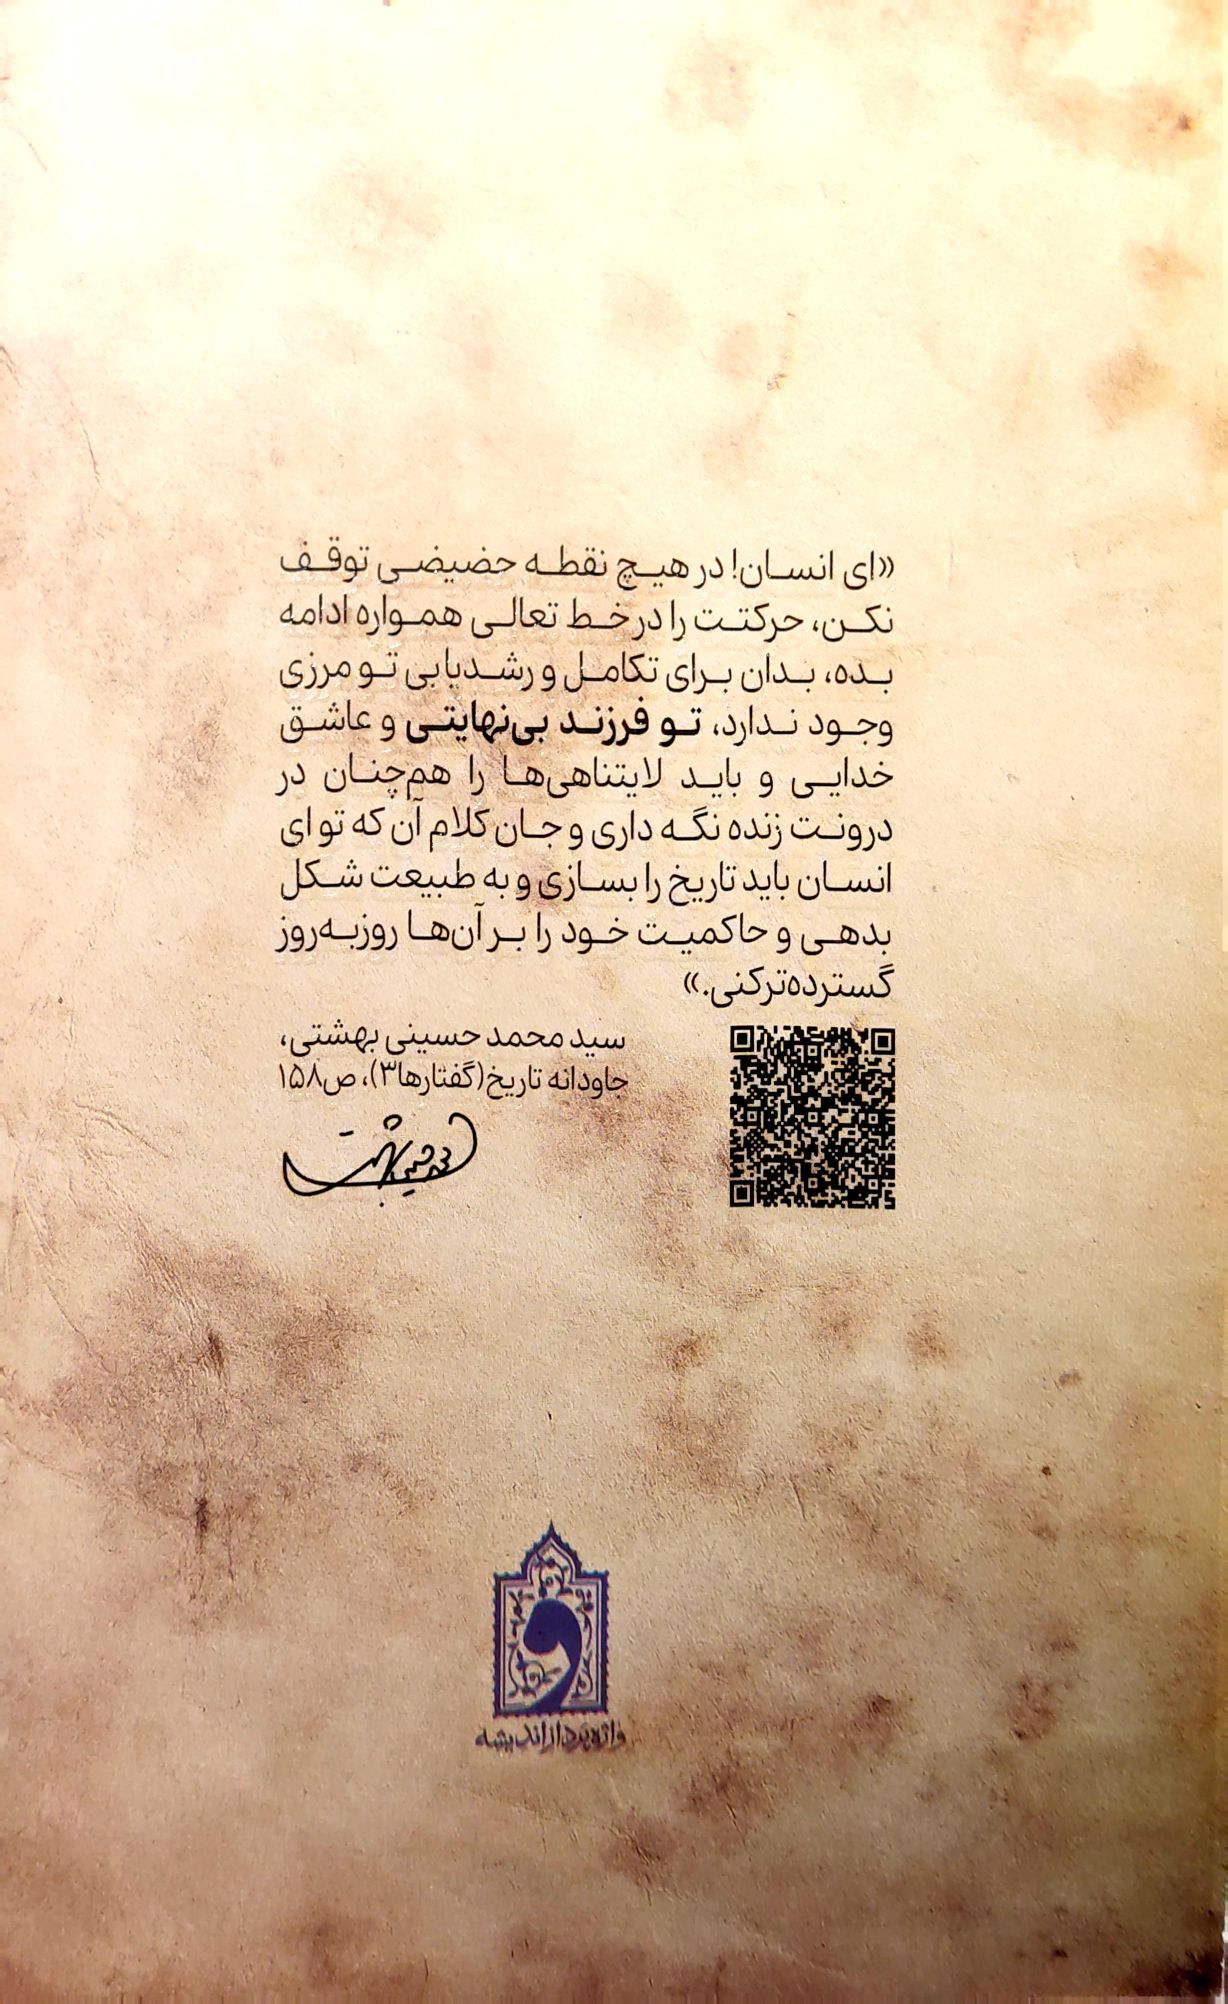 «ای انسان! در هیچ نقطه حضیضی توقف
نکن، حرکتت را در خط تعالی همواره ادامه
بده، بدان برای تکامل و رشدیابی تو مرزی
وجود ندارد، تو فرزند بی‌نهایتی و عاشق
خدایی و باید لایتناهی‌ها را هم‌چنان در
درونت زنده نگه داری و جان کلام آن که تو ای
انسان باید تاریخ را بسازی و به طبیعت شکل
بدهی و حاکمیت خود را بر آن‌ها روزبه‌روز
گسترده‌تر کنی.»
سید محمد حسینی بهشتی،
جاودانه تاریخ(گفتارها۳)، ص۱۵۸
واژه‌پرداز اندیشه